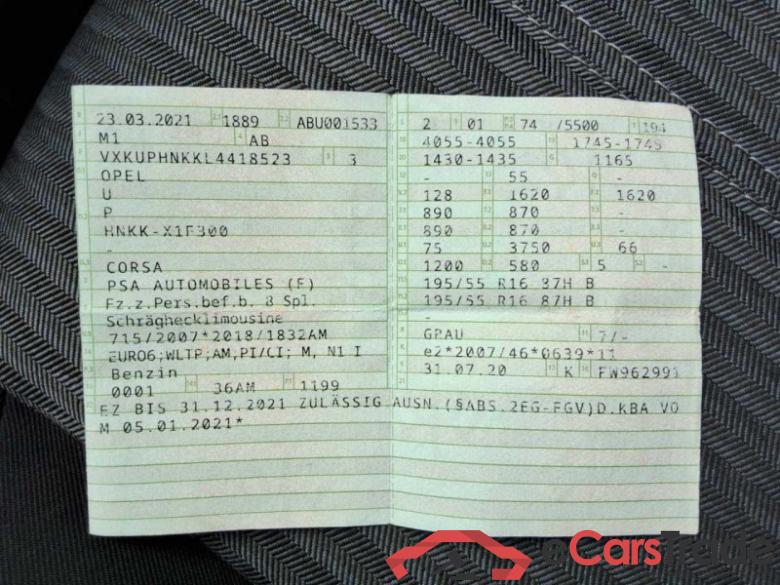 23.03.2021 1889 ABU001533
M1 AB
VXKUPHNKKL4418523 3
OPEL
U
P
HNKK-X1F300
-
CORSA
PSA AUTOMOBILES (F)
Fz.z.Pers.bef.b. 8 Spl.
Schräghecklimousine
715/2007*2018/1832AM
EURO6;WLTP;AM,PI/CI; M, N1 I
Benzin
0001 36AM 1199
2 01 74 /5500 194
4055-4055 1745-1745
1430-1435 1165
- 55 -
128 1620 1620
890 870 -
890 870 -
75 3750 66
1200 580 5 -
195/55 R16 87H B
195/55 R16 87H B
-
GRAU 7/-
e2*2007/46*0639*11
31.07.20 K FW962991
EZ BIS 31.12.2021 ZULÄSSIG AUSN.(§ABS.2EG-FGV)D.KBA VO
M 05.01.2021*
eCarsTrade